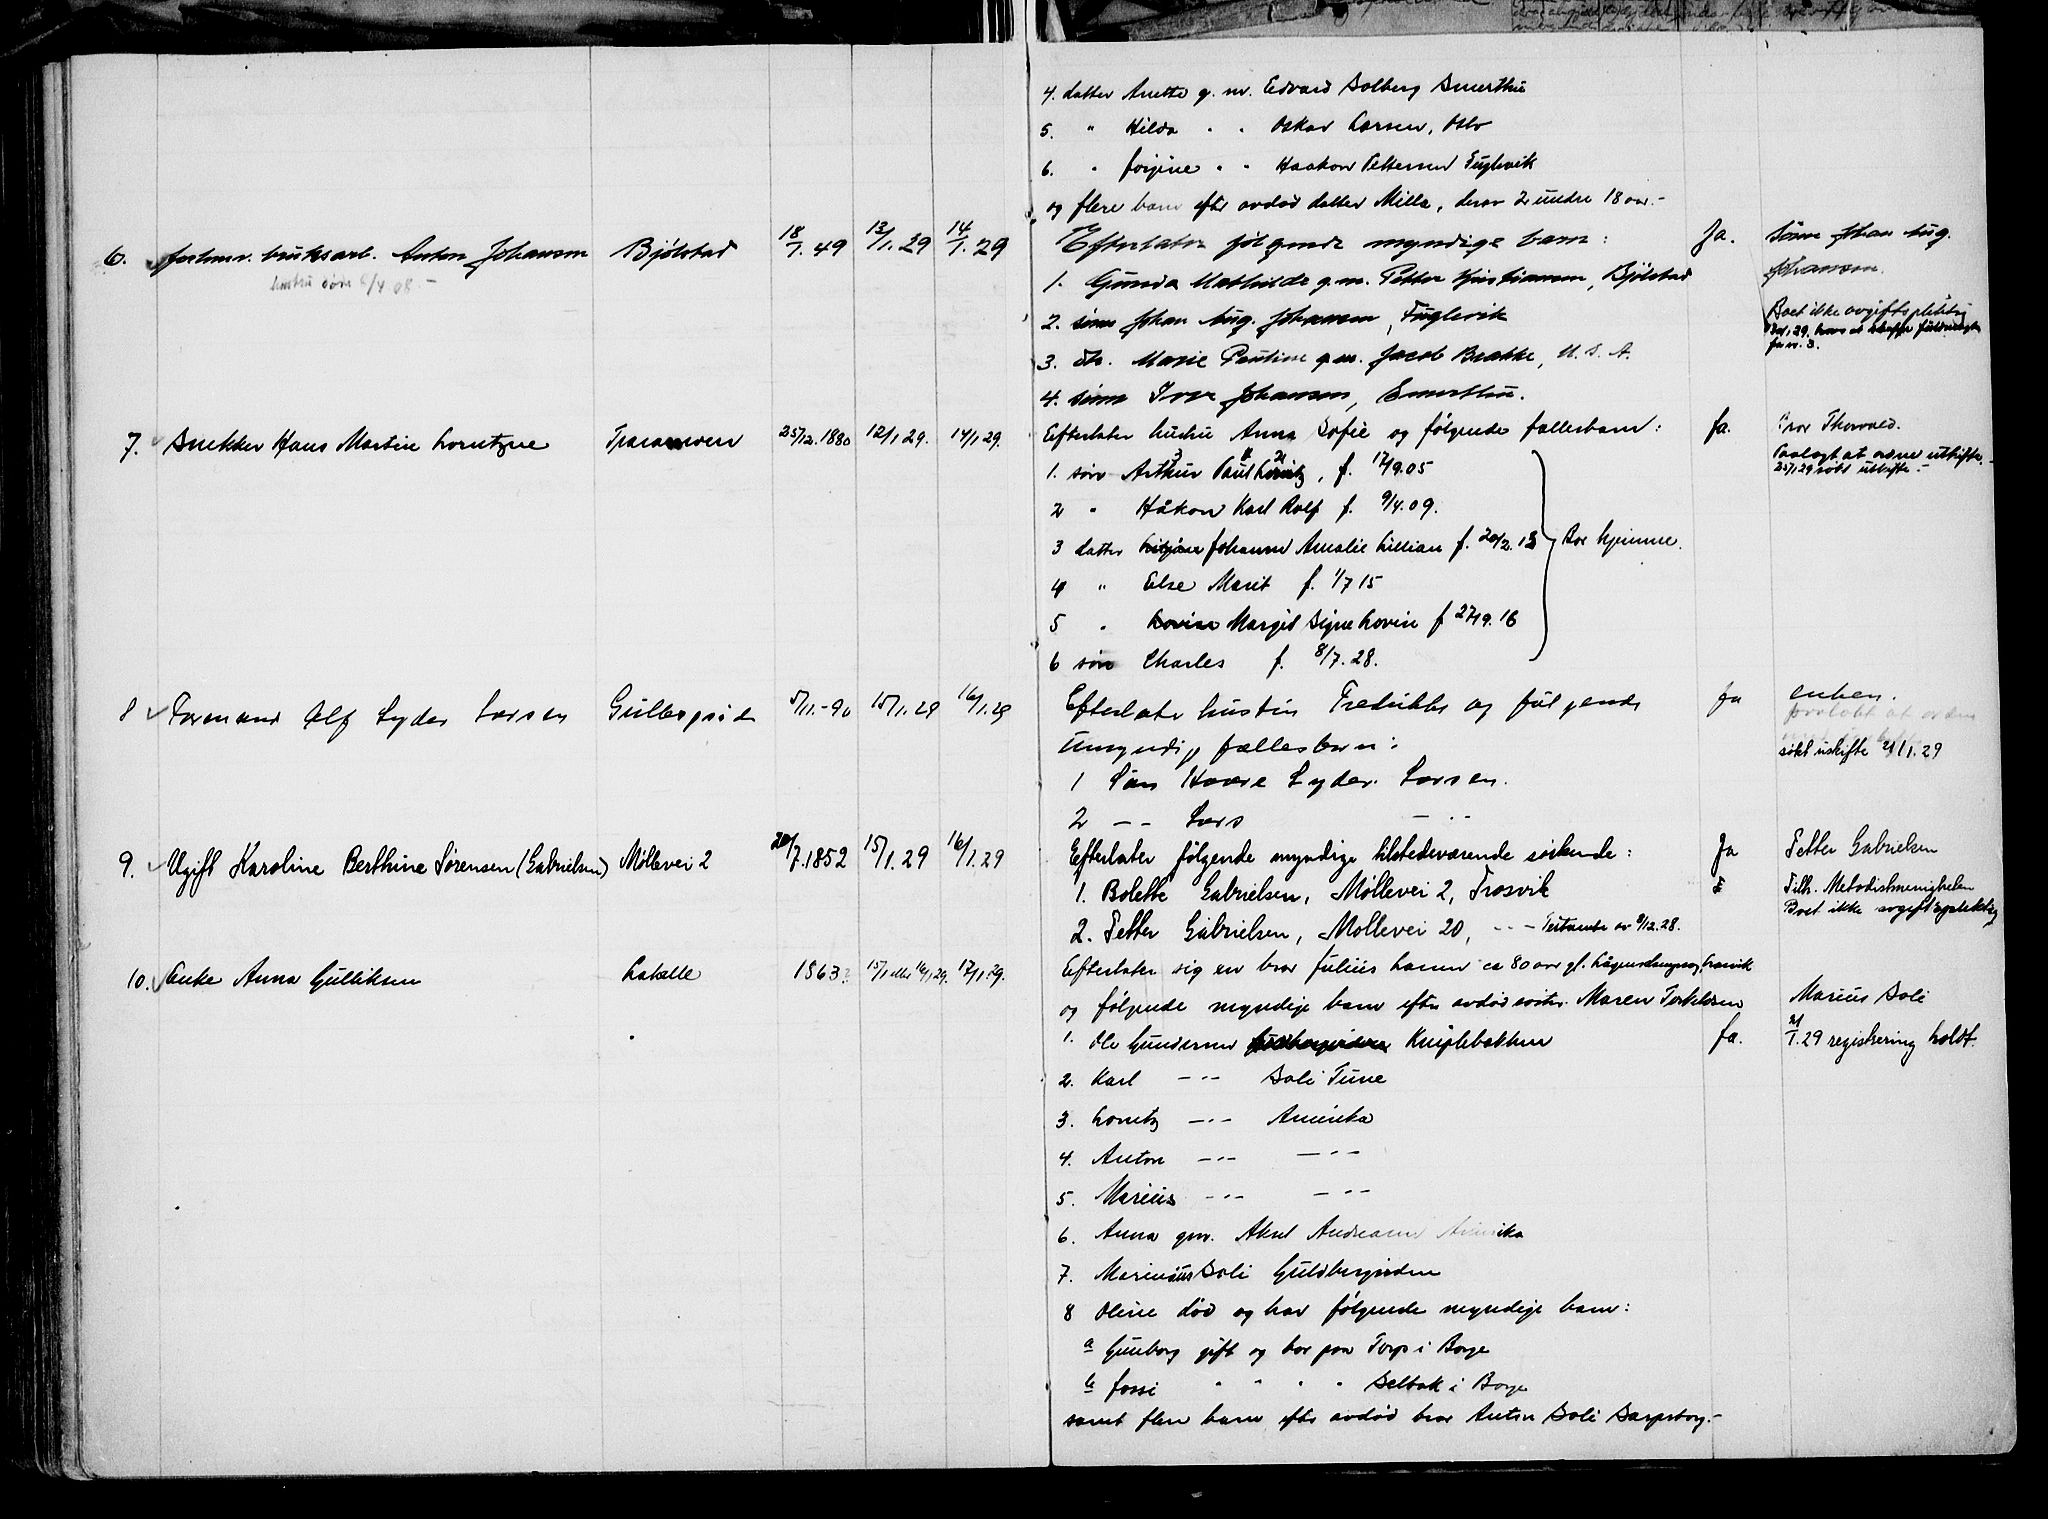 4. datter Anette g. m. Edvard Solberg Smerthu
5. " Hilda " " Oskar Larsen, Oslo
6. " Jørgine " " Haakon Pettersen Fuglevik
og flere barn efter avdød datter Milla, derav 2 undre 18 aar.-
6. forhenv. bruksarb. Anton Johansen Bjølstad 18/1.49 13/1.29 14/1.29 Efterlater følgende myndige barn: Ja. Sønn Johan Aug.
hustru døde 6/4 08. -
Johansen.
1. Gunda Mathilde g.m. Petter Kristiansen, Bjølstad
2. sønn Johan Aug. Johansen, Fuglevik
Boet ikke avgiftspliktig
3. dtr. Marie Pauline g.m. Jacob Brække, U.S.A.
4. sønn Ivar Johansen, Smerthu.
7. Snekker Hans Martin Lorntzen Traraveien 25/12.1880 12/1 29. 14/1 29. Efterlater hustru Anna Sofie og følgende fællesbarn: Ja. Bror Thorvald.
Paalagt at ordne utskifte.
25/1 29 søkt utskifte. -
1. søn Arthur Paul Lorntz, f. 17/9.05
2 " Håkon Karl Rolf f. 9/4.09.
3 datter Johanne Amalie Lillian f. 20/2.13 Bor hjemme.
4 " Else Marit f. 1/7 15
5 " Lovise Margit Signe Lovise f 27/9.16
6 søn Charles f. 8/7.28.
8 Formand Alf Lyder Larsen Gullbergsid 5/11.-90 15/1.29 16/1.29 Efterlater hustru Fredrikke og følgende Ja enken.
umyndige fællesbarn:
søkt uskifte 21/1.29
1 Søn Kaare Lyder Larsen.
2 -"- Lars -"-
9. Ugift Karoline Berthine Sørensen (Gabrielsen) Møllevei 2 20/7.1852 15/1.29 16/1.29 Efterlater følgende myndige tilstedeværende søskende: Ja Petter Gabrielsen
1. Bolette Gabrielsen, Møllevei 2, Trosvik Tilh. Metodistmenigheten
Boet ikke avgiftspliktig
2. Petter Gabrielsen, Møllevei 20, -"- Testamente av 9/12.28.
10. Enke Anna Gulliksen Labølle 1863? 15/1 eller 16/1 29. 17/1.29. Efterlater sig en bror Julius Hansen ca 80 aar gl.
og følgende myndige barn efter avdød søster Maren Torkelsen Marius Soli
1. Ole Gundersen Kniplebakken Ja. 21/1.29 registrering holdt.
2. Karl -"- Soli Tune
3. Lorntz -"- Amerika
4. Anton -"- -"-
5. Marius -"- -"-
6. Anna gm. Aksel Andreasen Amerika
7. Marius Soli Guldbergsiden
8 Oline død og har følgende myndige barn:
a Gunborg gift og bor paa Torp i Borge
b Jossi " " " " Selbak i Borge
samt flere barn efter avdød bror Anton Soli Sarpsborg.-